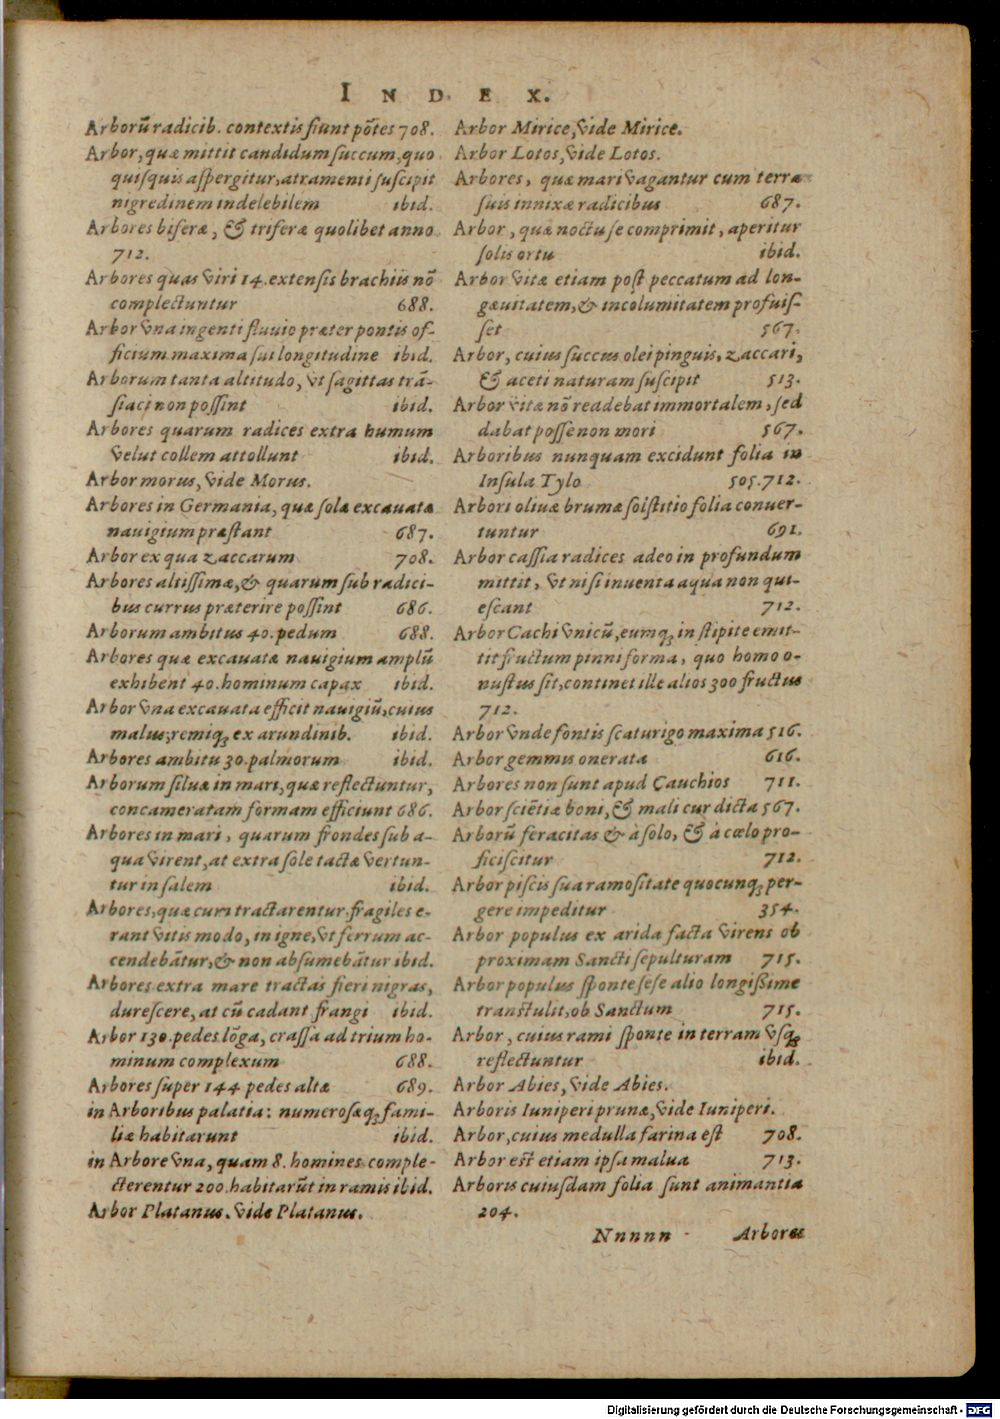 INDEX.
Arborū radicib. contextis fiunt pōtes 708.
Arbor, quæ mittit candidum ſuccum, quo
quiſquis aſpergitur, atramenti ſuſcipit
nigredinem indelebilem ibid.
Arbores biferæ, & triferæ quolibet anno
712.
Arbores quas viri 14. extenſis brachiis nō
complectuntur 688.
Arbor vna ingenti fluuio præter pontis of-
ficium maxima ſui longitudine ibid.
Arborum tanta altitudo, vt ſagittas trā-
ſiaci non poſſint ibid.
Arbores quarum radices extra humum
velut collem attollunt ibid.
Arbor morus, vide Morus.
Arbores in Germania, quæ ſolæ excauatæ
nauigium præſtant 687.
Arbor ex qua zaccarum 708.
Arbores altiſſimæ, & quarum ſub radici-
bus currus præterire poſſint 686.
Arborum ambitus 40. pedum 688.
Arbores quæ excauatæ nauigium amplū
exhibent 40. hominum capax ibid.
Arbor vna excauata efficit nauigiū, cuius
malus; remiq; ex arundinib. ibid.
Arbores ambitu 30. palmorum ibid.
Arborum ſiluæ in mari, quæ reflectuntur,
concameratam formam efficiunt 686.
Arbores in mari, quarum frondes ſub a-
qua virent, at extra ſole tactæ vertun-
tur in ſalem ibid.
Arbores, quæ cum tractarentur, fragiles e-
rant vitis modo, in igne, vt ferrum ac-
cendebātur, & non abſumebātur ibid.
Arbores extra mare tractas fieri nigras,
dureſcere, at cū cadant frangi ibid.
Arbor 130. pedes lōga, craſſa ad trium ho-
minum complexum 688.
Arbores ſuper 144 pedes altæ 689.
in Arboribus palatia: numeroſæq; fami-
liæ habitarunt ibid.
in Arbore vna, quam 8. homines comple-
cterentur 200. habitarūt in ramis ibid.
Arbor Platanus. vide Platanus.
Arbor Mirice, vide Mirice.
Arbor Lotos, vide Lotos.
Arbores, quæ mari vagantur cum terræ
ſuis innixæ radicibus 687.
Arbor, quæ noctu ſe comprimit, aperitur
ſolis ortu ibid.
Arbor vitæ etiam poſt peccatum ad lon-
gæuitatem, & incolumitatem profuiſ-
ſet 567.
Arbor, cuius ſuccus olei pinguis, zaccari,
& aceti naturam ſuſcipit 513.
Arbor vitæ nō readebat immortalem, ſed
dabat poſſe non mori 567.
Arboribus nunquam excidunt folia in
Inſula Tylo 505. 712.
Arbori oliuæ brumæ ſolſtitio folia conuer-
tuntur 691.
Arbor caſſia radices adeo in profundum
mittit, vt niſi inuenta aqua non qui-
eſcant 712.
Arbor Cachi vnicū, eumq; in ſtipite emit-
tit fructum pinni forma, quo homo o-
nuſtus ſit, continet ille alios 300 fructus
712.
Arbor vnde fontis ſcaturigo maxima 516.
Arbor gemmis onerata 616.
Arbores non ſunt apud Cauchios 711.
Arbor ſciētiæ boni, & mali cur dicta 567.
Arborū feracitas & à ſolo, & à cœlo pro-
ficiſcitur 712.
Arbor piſcis ſua ramoſitate quocunq; per-
gere impeditur 354.
Arbor populus ex arida facta virens ob
proximam Sancti ſepulturam 715.
Arbor populus ſponte ſeſe alio longiſſime
tranſtulit, ob Sanctum 715.
Arbor, cuius rami ſponte in terram vſq;
reflectuntur ibid.
Arbor Abies, vide Abies.
Arboris Iuniperi prunæ, vide Iuniperi.
Arbor, cuius medulla farina eſt 708.
Arbor eſt etiam ipſa malua 713.
Arboris cuiuſdam folia ſunt animantia
204.
Nnnnn Arbores
Digitalisierung gefördert durch die Deutsche Forschungsgemeinschaft - DFG